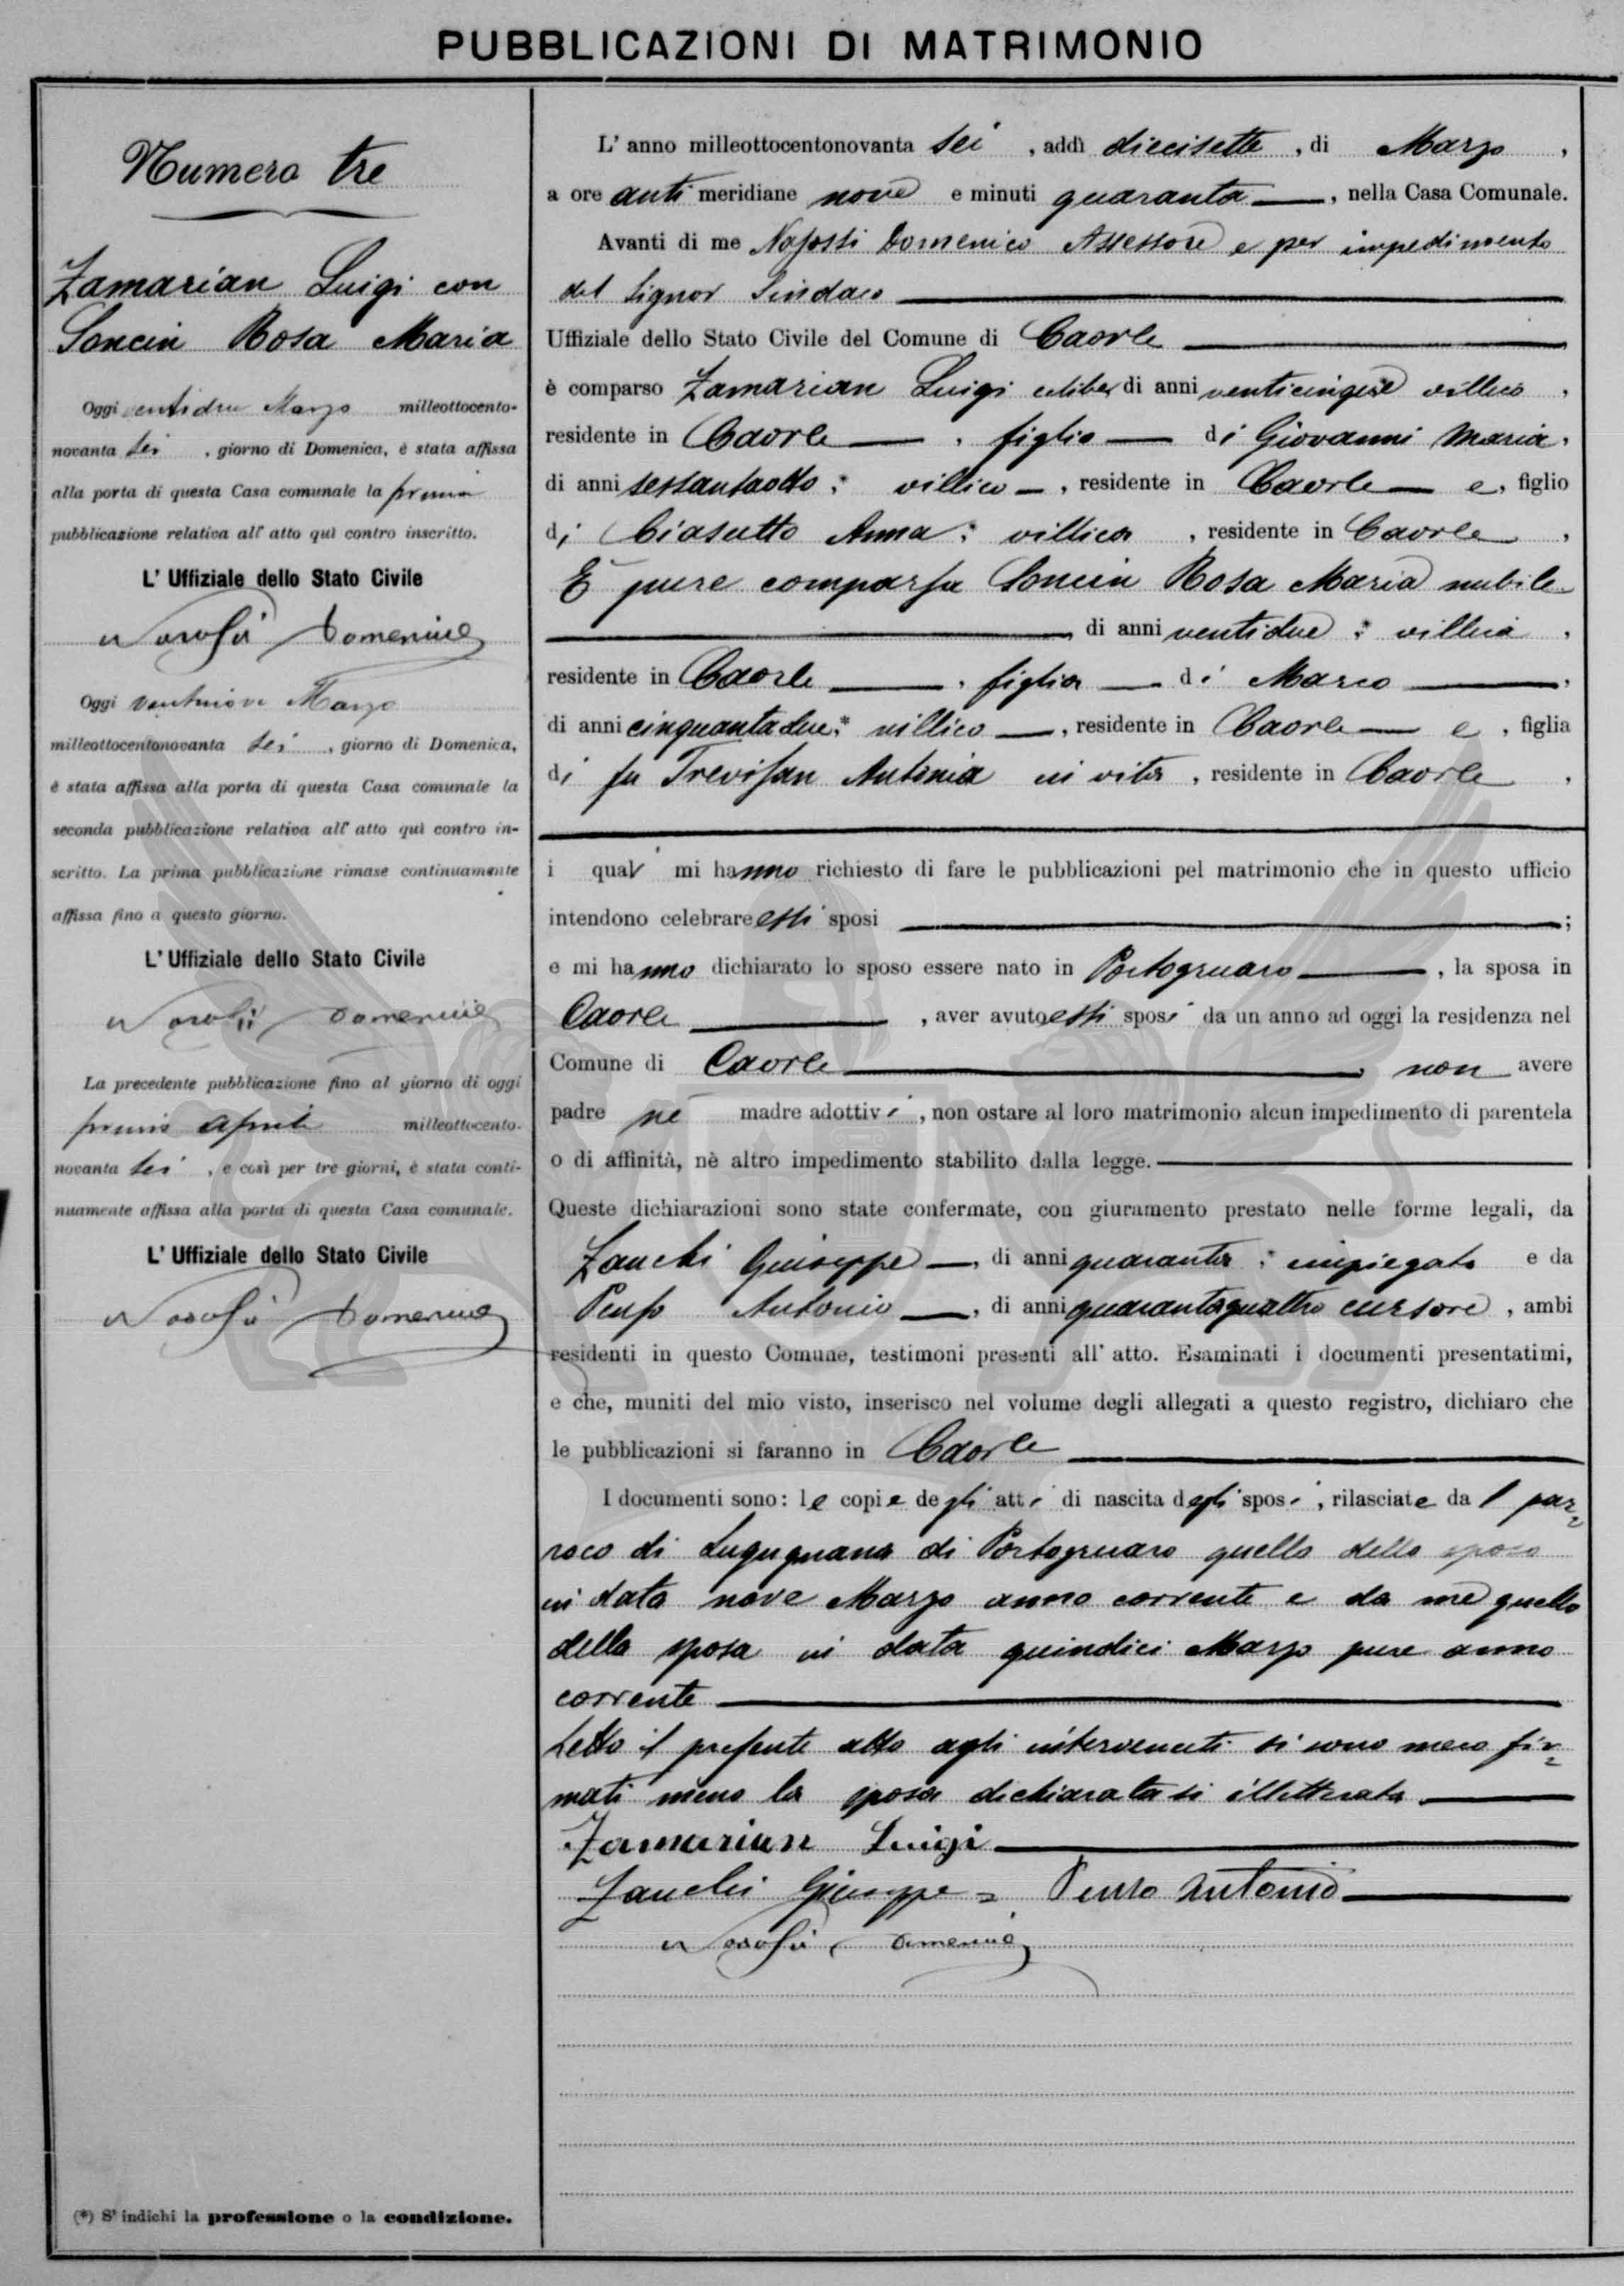 PUBBLICAZIONI DI MATRIMONIO
Numero tre
Zamarian Luigi con
Soncin Rosa Maria
Oggi ventidue Marzo milleottocento-
novanta sei, giorno di Domenica, è stata affissa
alla porta di questa Casa comunale la prima
pubblicazione relativa all' atto quì contro inscritto.
L' Uffiziale dello Stato Civile
Domenico
Oggi ventinove Marzo
milleottocentonovanta sei, giorno di Domenica,
è stata affissa alla porta di questa Casa comunale la
seconda pubblicazione relativa all' atto quì contro in-
scritto. La prima pubblicazione rimase continuamente
affissa fino a questo giorno.
L' Uffiziale dello Stato Civile
Domenico
La precedente pubblicazione fino al giorno di oggi
primo Aprile milleottocento-
novanta sei, e così per tre giorni, è stata conti-
nuamente affissa alla porta di questa Casa comunale.
L' Uffiziale dello Stato Civile
Domenico
(*) S' indichi la professione o la condizione.
L' anno milleottocentonovanta sei, addì diecisette, di Marzo,
a ore anti meridiane nove e minuti quaranta, nella Casa Comunale.
Avanti di me Domenico Assessore e per impedimento
del Signor Sindaco
Uffiziale dello Stato Civile del Comune di Caorle
è comparso Zamarian Luigi celibe, di anni venticinque villico,
residente in Caorle, figlio di Giovanni Maria,
di anni sessantaotto,* villico, residente in Caorle e, figlio
di Ciasutto Anna,* villica, residente in Caorle,
E' pure comparsa Soncin Rosa Maria nubile
di anni ventidue,* villica,
residente in Caorle, figlia di Marco,
di anni cinquantadue,* villico, residente in Caorle e, figlia
di fu Trevisan Antonia in vita, residente in Caorle,
i quali mi hanno richiesto di fare le pubblicazioni pel matrimonio che in questo ufficio
intendono celebrare essi sposi;
e mi hanno dichiarato lo sposo essere nato in Portogruaro, la sposa in
Caorle, aver avuto essi sposi da un anno ad oggi la residenza nel
Comune di Caorle, non avere
padre nè madre adottivi, non ostare al loro matrimonio alcun impedimento di parentela
o di affinità, nè altro impedimento stabilito dalla legge.
Queste dichiarazioni sono state confermate, con giuramento prestato nelle forme legali, da
Zanchi Giuseppe, di anni quaranta,* impiegato e da
Penso Antonio, di anni quarantaquattro cursore, ambi
residenti in questo Comune, testimoni presenti all' atto. Esaminati i documenti presentatimi,
e che, muniti del mio visto, inserisco nel volume degli allegati a questo registro, dichiaro che
le pubblicazioni si faranno in Caorle
I documenti sono: le copie degli atti di nascita degli sposi, rilasciate dal par=
roco di Lugugnana di Portogruaro quella dello sposo
in data nove Marzo anno corrente e da me quella
della sposa in data quindici Marzo pure anno
corrente
Letto il presente atto agli intervenuti si sono meco fir=
mati meno la sposa dichiaratasi illetterata.
Zamarian Luigi
Zanchi Giuseppe = Penso Antonio
Domenico